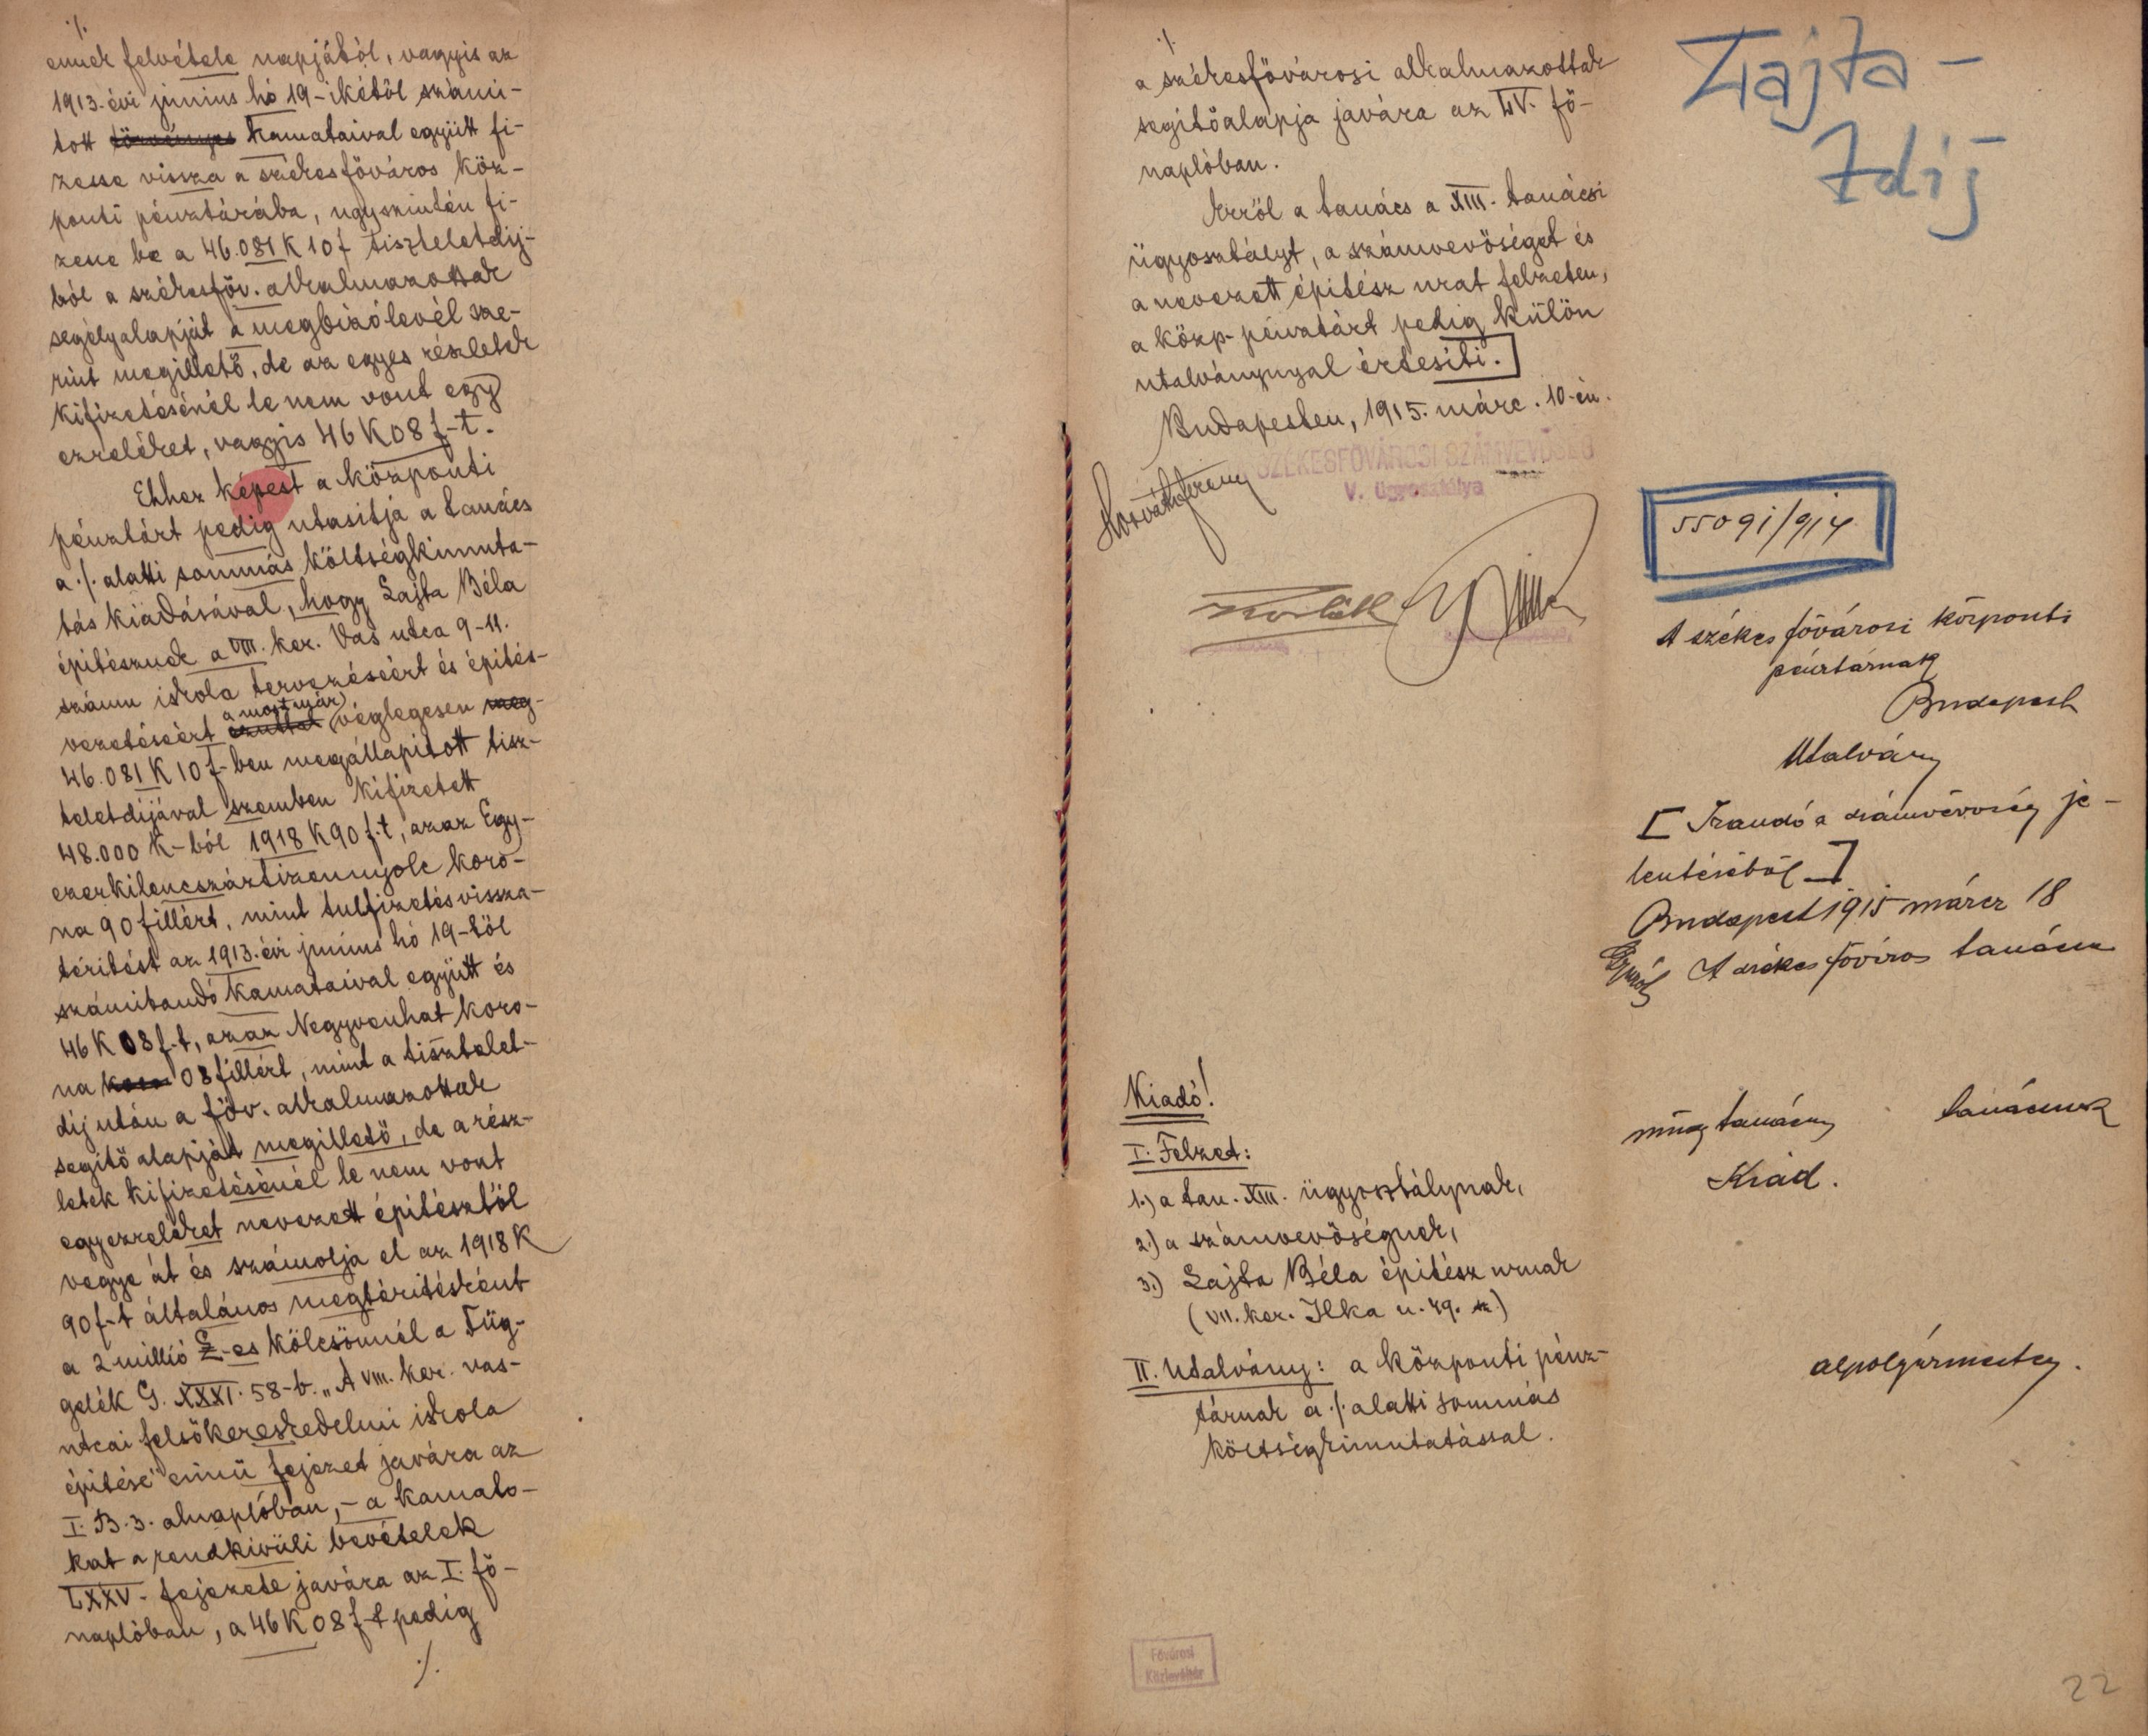 ./.
ennek felvétele napjától, vagyis az
1913. évi junius hó 19-ikétől számi-
tott törvényes kamataival együtt fi-
zesse vissza a székesfőváros köz-
ponti pénztárába, ugyszintén fi-
zesse be a 46.081 K 10 f tiszteletdij-
ból a székesföv. alkalmazottak
segélyalapját a megbizólevél sze-
rint megillető, de az egyes részletek
kifizetésénél le nem vont egy
ezreléket, vagyis 46 K 08 f-t.
Ehhez képest a központi
pénztárt pedig utasitja a tanács
a ./. alatti sommás költségkimuta-
tás kiadásával, hogy Lajta Béla
épitésznek a VIII. ker. Vas utca 9-11.
számu iskola tervezéséért és épités-
vezetéséért ezuttal a most már véglegesen meg-
46.081 K 10 f-ben megállapitott tisz-
teletdijával szemben kifizetett
48.000 K-ból 1918 K 90 f-t, azaz Egy-
ezerkilencszáztizennyolc koro-
na 90 fillért, mint tulfizetés vissza-
téritést az 1913. évi junius hó 19-től
számitandó kamataival együtt és
46 K 08 f-t, azaz Negyvenhat koro-
na koro 08 fillért, mint a tisztelet-
dij után a föv. alkalmazottak
segitő alapját megillető, de a rész-
letek kifizetésénél le nem vont
egyezreléket nevezett épitésztől
vegye át és számolja el az 1918 K
90 f-t általános megtéritésként
a 2 millió £-es kölcsönnél a Füg-
gelék G. XXXI. 58-b. „A VIII. ker. vas-
utcai felsőkereskedelmi iskola
épitése" cimü fejezet javára az
I. B. 3. alnaplóban, - a kamato-
kat a rendkivüli bevételek
LXXV. fejezete javára az I. fő-
naplóban, a 46 K 08 f-t pedig
./.
./.
a székesfővárosi alkalmazottak
segitőalapja javára az IV. fő-
naplóban.
Erről a tanács a XIII. tanácsi
ügyosztályt, a számvevőséget és
a nevezett épitész urat felzeten,
a közp. pénztárt pedig külön
utalványnyal értesiti.
Budapesten, 1915. márc. 10-én.
SZÉKESFŐVÁROSI SZÁMVEVŐSÉG
V. ügyosztálya
Horváth Ferenc
Kiadó!
I. Felzet:
1.) a tan. XIII. ügyosztálynak,
2.) a számvevőségnek,
3.) Lajta Béla épitész urnak
(VII. ker. Ilka u. 49. sz.)
II. Utalvány: a központi pénz-
tárnak a ./. alatti sommás
költségkimutatással.
Fővárosi
Közlevéltár
Lajta-
Tdij
55091/914
A székesfővárosi központi
pénztárnak
Budapest
Utalvány
[Irandó a számvevőség je-
lentéséből]
Budapest 1915 márcz 18
A székesfőváros tanácsa
müsz tanácsn tanácsnok
Kiad.
alpolgármester.
22